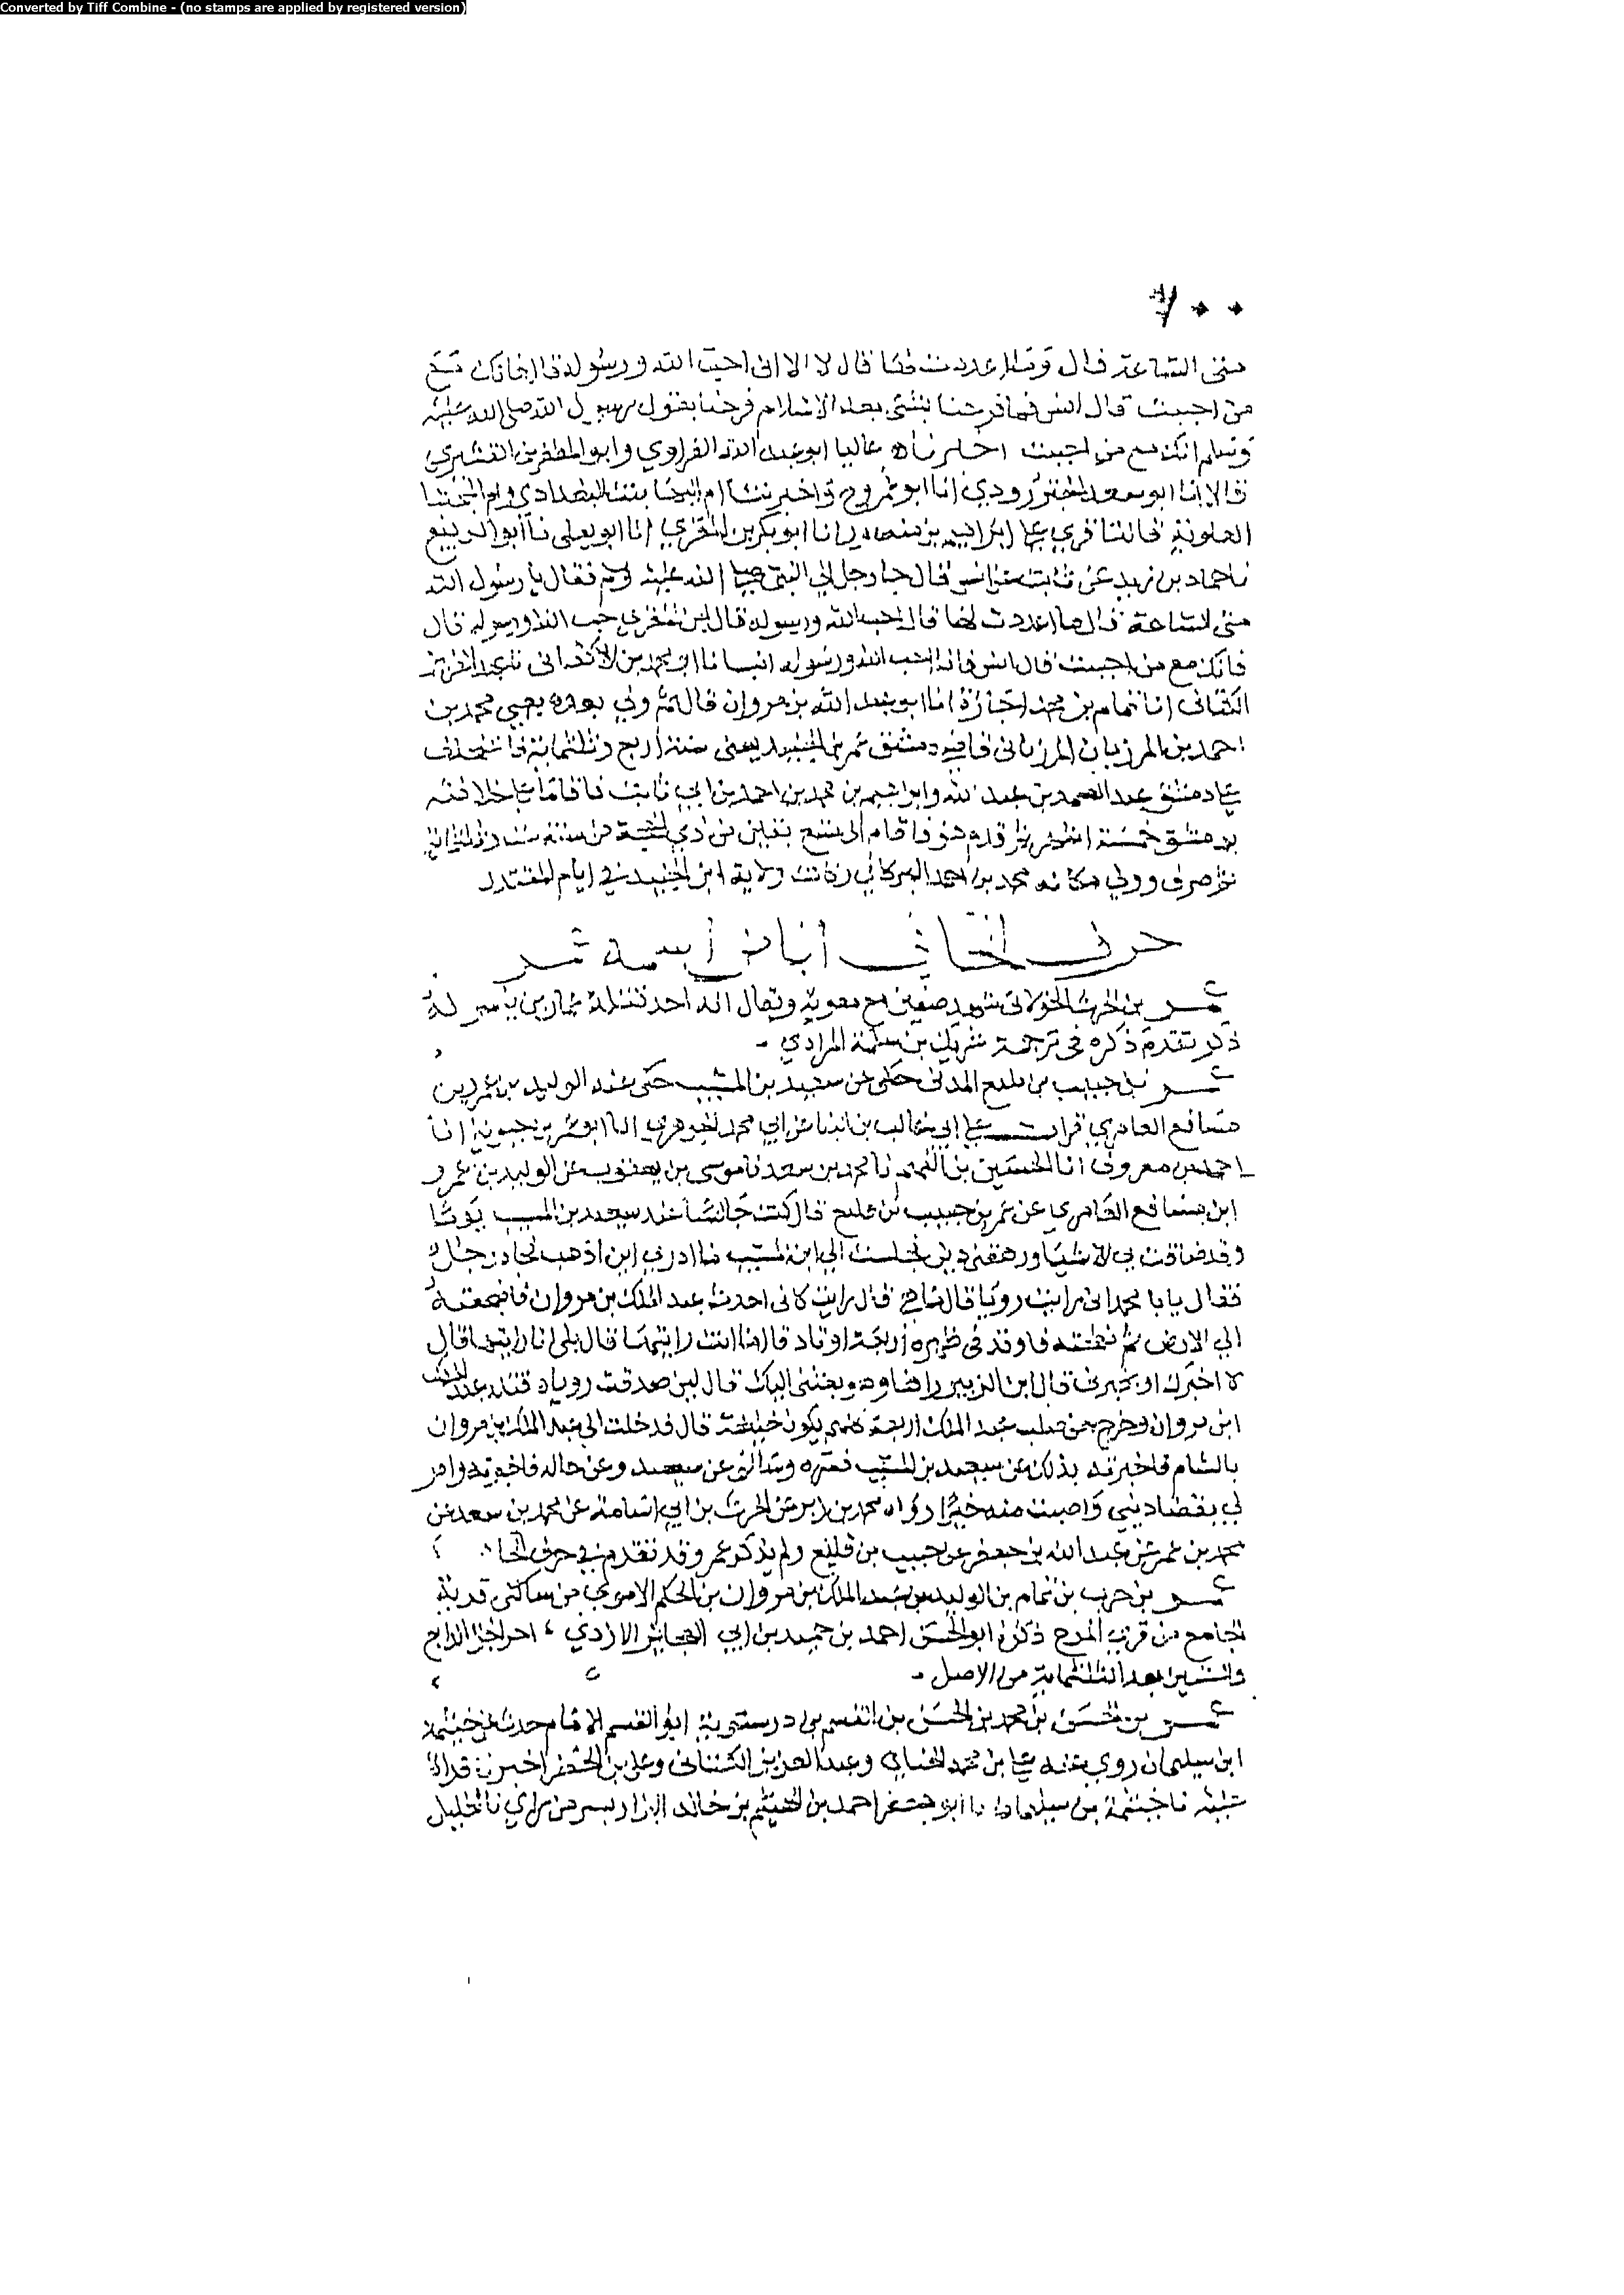 Converted by Tiff Combine - (no stamps are applied by registered version)
متى الساعة قال وما اعددت لها قال لا الا اني احب الله ورسوله قال فانك مع
من احببت قال انس فما فرحنا بشي بعد الاسلام فرحنا بقول رسول الله صلى الله عليه
وسلم انك مع من احببت اخبرناه عاليا ابو عبد الله الفراوي وابو المظفر بن القشيري
قالا انا ابو سعد الجنزرودي انا ابو عمرو ح واخبرتنا ام البها بنت البغدادي وام المجتبا
العلوية قالتا قري على ابراهيم بن منصور انا ابو بكر بن المقري انا ابو يعلى نا ابو الربيع
نا حماد بن زيد عن ثابت عن انس قال جا رجل الي النبي صلى الله عليه وسلم فقال يا رسول الله
متى الساعة قال ما اعددت لها قال احب الله ورسوله قال ابن المقري حب الله ورسوله قال
فانك مع من احببت قال انس فانا احب الله ورسوله انبانا ابو محمد بن الاكفاني نا عبد العزيز
الكتاني انا تمام بن محمد اجازة انا ابو عبد الله بن مروان قال ثم ولي بعده يعني محمد بن
احمد بن المرزبان المرزباني قاضي دمشق عمر بن الجنيد يعني سنة اربع وثلثمائة فاستخلف
على دمشق عبد الصمد بن عبد الله وابراهيم بن محمد بن احمد بن ابي ثابت فاقاما على خلافته
بدمشق خمسة اشهر ثم قدم هو فاقام الى تسع بقين من ذي الحجة من سنة ست وثلثمائة
ثم صرف وولي مكانه محمد بن احمد البركاني وكانت ولاية ابن الجنيد في ايام المقتدر
حرف الحا في ابا من اسمه عمر
عمر بن الحرث الخولاني شهد صفين مع معوية ويقال انه احد قتلة عمار بن ياسر له
ذكر تقدم ذكره في ترجمة شريك بن سلمة المرادي
عمر بن حبيب بن قليع المدني حكى عن سعيد بن المسيب حكى عنه الوليد بن عمرو بن
مسافع العامري قرات على ابي غالب بن البنا عن ابي محمد الجوهري انا ابو عمر بن حيوية انا
احمد بن معروف انا الحسين بن الفهم نا محمد بن سعد نا موسى بن يعقوب عن الوليد بن عمرو
ابن مسافع العامري عن عمر بن حبيب بن قليع قال كنت جالسا عند سعيد بن المسيب يوما
وقد ضاقت بي الاشيا ورهقني دين فجلست الي ابن المسيب ما ادري اين اذهب فجاه رجل
فقال يا با محمد اني رايت رويا قال ما هي قال رايت كاني اخذت عبد الملك بن مروان فاضجعته
الي الارض ثم بطحته فاوتدت في ظهره اربعة اوتاد قال ما انت رايتها قال بلى انا رايتها قال
لا اخبرك او تخبرني قال ابن الزبير راها وهو بعثني اليك قال لين صدقت روياه قتله عبد الملك
ابن مروان وخرج من صلب عبد الملك اربعة كلهم يكون خليفة قال فدخلت الي عبد الملك بن مروان
بالشام فاخبرته بذلك عن سعيد بن المسيب فسره وسالني عن سعيد وعن حاله فاخبرته وامر
لي بقضا ديني واصبت منه خيرا رواه محمد بن زبر عن الحرث بن ابي اسامة عن محمد بن سعد عن
محمد بن عمر عن عبد الله بن جعفر عن حبيب بن قليع ولم يذكر عمر وقد تقدم في حرف الحا
عمر بن حرب بن تمام بن الوليد بن عبد الملك بن مروان بن الحكم الاموي من ساكني قرية
الجامع من قري المرج ذكره ابو الحسن احمد بن حميد بن ابي العجايز الازدي اخر الجزا الرابع
والستين بعد الثلثماية من الاصل
عمر بن الحسن بن محمد بن الحسن بن القسم بن درستوية ابو القسم الامام حدث عن خيثمة
ابن سليمان روي عنه علي بن محمد الحنايي وعبد العزيز الكتاني وعلي بن الخضر اخبرنا قراة
عليه نا خيثمة بن سليمان نا ابو جعفر احمد بن الهيثم بن خالد البزاز بسر من راي نا الخليل